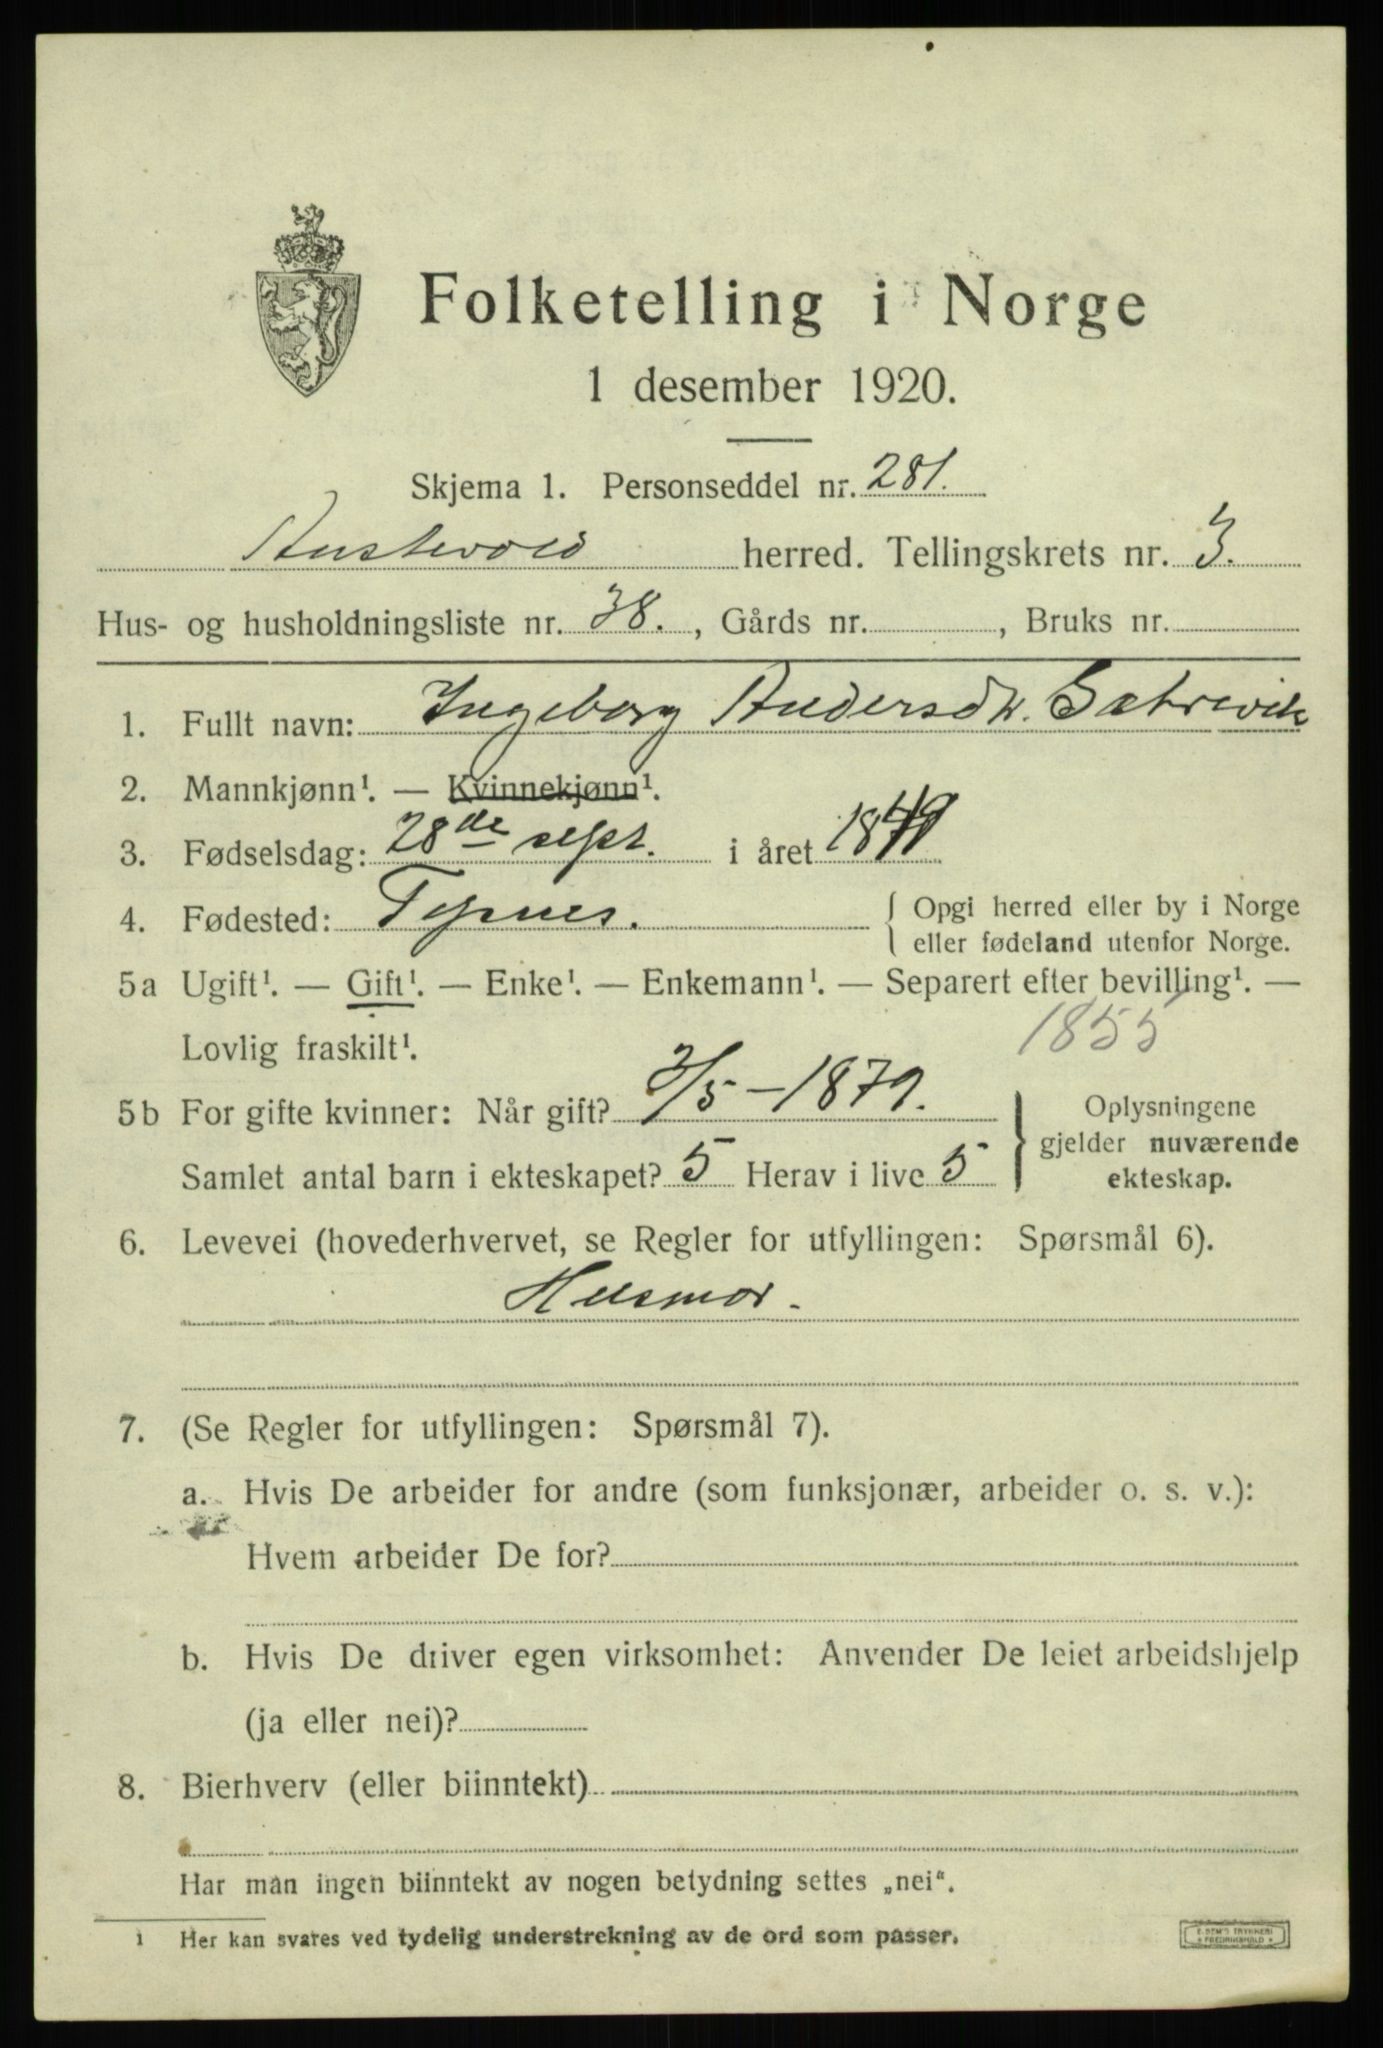 Folketelling i Norge
1 desember 1920.
Skjema 1. Personseddel nr. 281.
Austevold herred. Tellingskrets nr. 3.
Hus- og husholdningsliste nr. 38. , Gårds nr. , Bruks nr.
1. Fullt navn: Ingeborg Andersdtr. Sætrevik
2. Mannkjønn¹. — Kvinnekjønn¹.
3. Fødselsdag: 28de sept. i året 1849
4. Fødested: Tysnes. { Opgi herred eller by i Norge
eller fødeland utenfor Norge.
5a Ugift¹. — Gift¹. — Enke¹. — Enkemann¹. — Separert efter bevilling¹. —
Lovlig fraskilt¹. 1855
5b For gifte kvinner: Når gift? 3/5 – 1879. } Oplysningene
gjelder nuværende
Samlet antal barn i ekteskapet? 5 Herav i live 5 ekteskap.
6. Levevei (hovederhvervet, se Regler for utfyllingen: Spørsmål 6).
Husmor.
7. (Se Regler for utfyllingen: Spørsmål 7).
a. Hvis De arbeider for andre (som funksjonær, arbeider o. s. v.):
Hvem arbeider De for?
b. Hvis De driver egen virksomhet: Anvender De leiet arbeidshjelp
(ja eller nei)?
8. Bierhverv (eller biinntekt)
Har man ingen biinntekt av nogen betydning settes „nei“.
1 Her kan svares ved tydelig understrekning av de ord som passer.
E. SEM'S TRYKKERI
FREDRIKSHALD